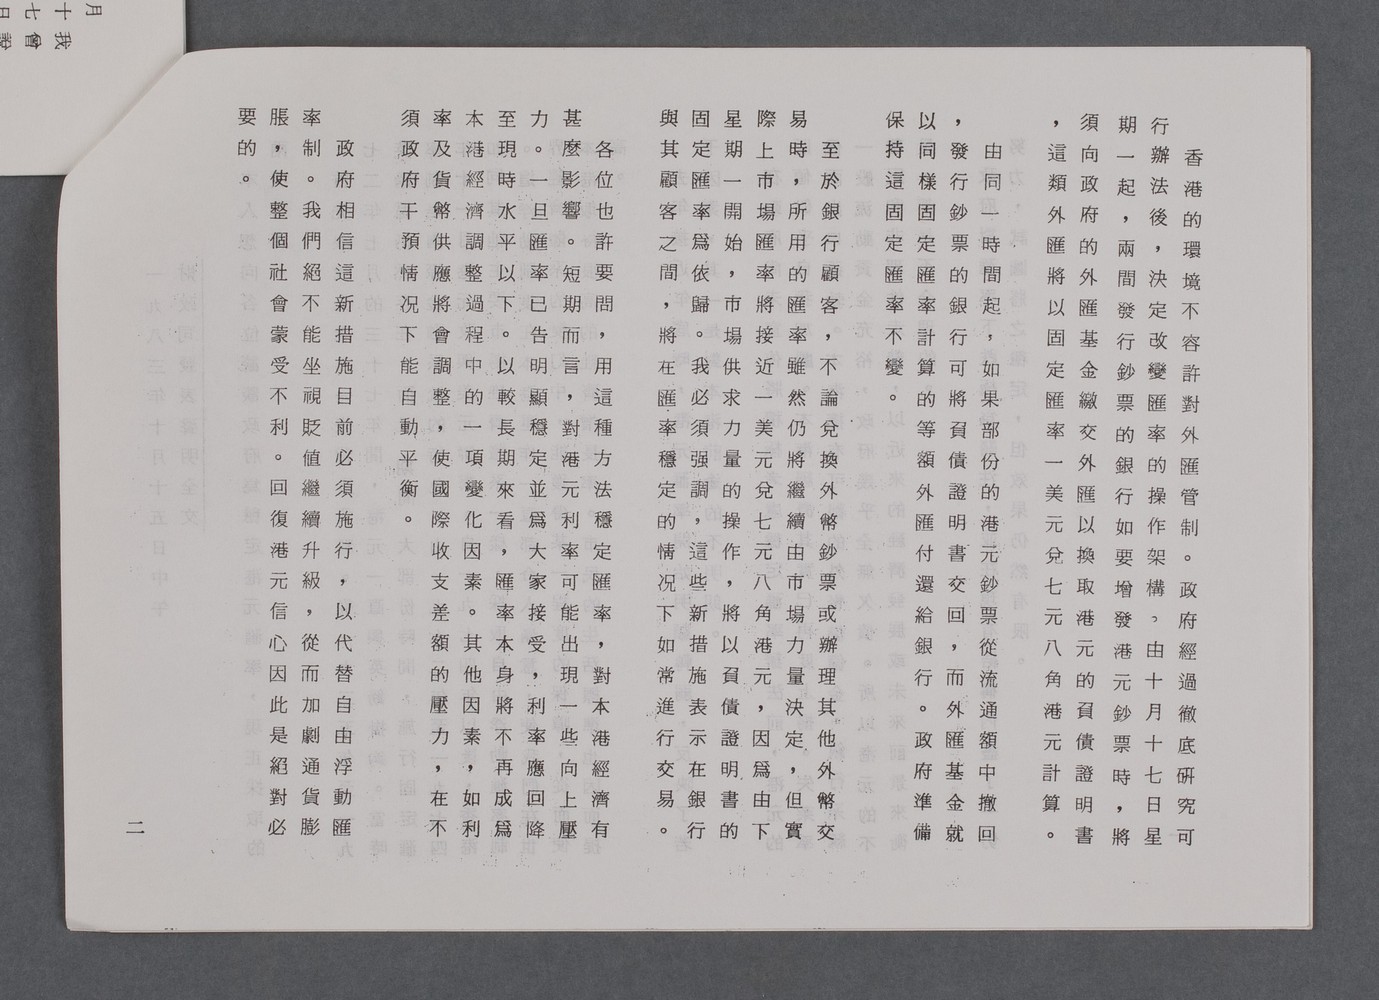 香港的環境不容許對外匯管制。政府經過徹底研究可
行辦法後，決定改變匯率的操作架構。由十月十七日星
期一起，兩間發行鈔票的銀行如要增發港元鈔票時，將
須向政府的外匯基金繳交外匯以換取港元的負債證明書
，這類外匯將以固定匯率一美元兌七元八角港元計算。
由同一時間起，如果部份的港元鈔票從流通額中撤回
，發行鈔票的銀行可將負債證明書交回，而外匯基金就
以同樣固定匯率計算的等額外匯付還給銀行。政府準備
保持這固定匯率不變。
至於銀行顧客，不論兌換外幣鈔票或辦理其他外幣交
易時，所用的匯率雖然仍將繼續由市場力量決定，但實
際上市場匯率將接近一美元兌七元八角港元，因爲由下
星期一開始，市場供求力量的操作，將以負債證明書的
固定匯率爲依歸。我必須强調，這些新措施表示在銀行
與其顧客之間，將在匯率穩定的情况下如常進行交易。
各位也許要問，用這種方法穩定匯率，對本港經濟有
甚麼影響。短期而言，對港元利率可能出現一些向上壓
力。一旦匯率已告明顯穩定並爲大家接受，利率應回降
至現時水平以下。以較長期來看，匯率本身將不再成爲
本港經濟調整過程中的一項變化因素。其他因素，如利
率及貨幣供應將會調整，使國際收支差額的壓力，在不
須政府干預情况下能自動平衡。
政府相信這新措施目前必須施行，以代替自由浮動匯
率制。我們絕不能坐視貶值繼續升級，從而加劇通貨膨
脹，使整個社會蒙受不利。回復港元信心因此是絕對必
要的。
二